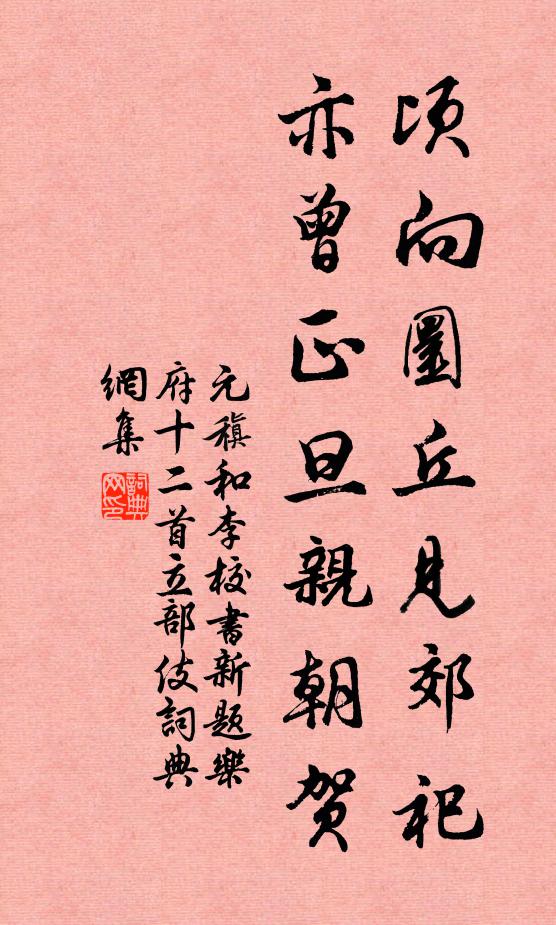 頃向圜丘見郊祀
亦曾正旦親朝賀
元稹和李校書新题樂
府十二首立部伎詞典
網集
詞典網印